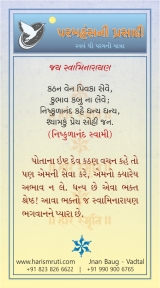 પરમહંસની પ્રસાદી
જય સ્વામિનારાયણ
કઠન વેન પિવકા સેવે,
કુભાવ કબુ ના લેવે;
નિષ્કુળાનંદ કહે ધન્ય ધન્ય,
શ્યામકુ પ્રેય સોહી જન.
(નિષ્કુળાનંદ સ્વામી)
પોતાના ઇષ્ટ દેવ કઠણ વચન કહે તો
પણ એમની સેવા કરે, એમનો ક્યારેય
અભાવ ન લે. ધન્ય છે એવા ભક્ત
શ્રેષ્ઠ! આવા ભક્તો જ સ્વામિનારાયણ
ભગવાનને પ્યારા છે.
www.harismruti.com
Jnan Baug - Vadtal
+91 823 826 6622 | +91 990 900 6765